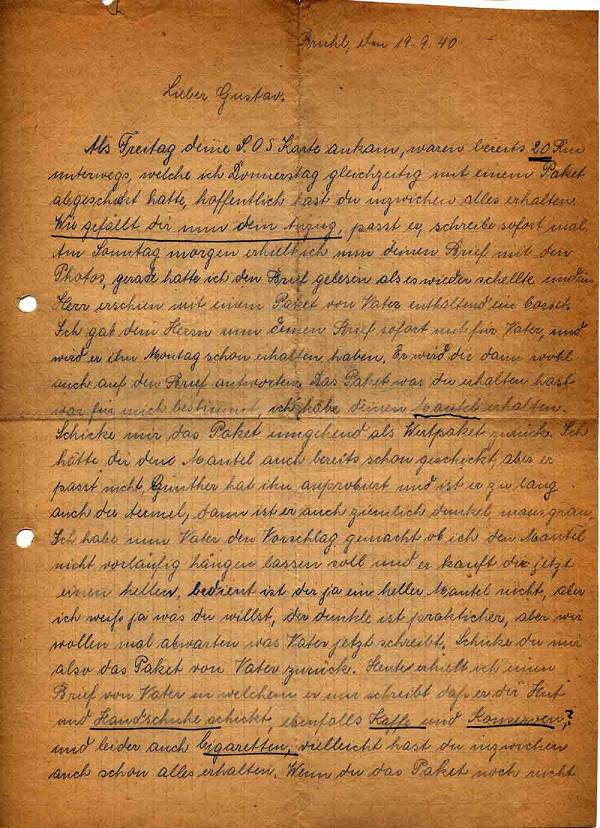 Brühl, den 19.9.40
Lieber Gustav.
Als Freitag deine S.O.S Karte ankam, waren bereits 20 Rm
unterwegs, welche ich Donnerstag gleichzeitig mit einem Paket
abgeschickt hatte, hoffentlich hast du inzwichen alles erhalten.
Wie gefällt dir nun dein Anzug, passt er, schreibe sofort mal.
Am Sonntag morgen erhielt ich nun deinen Brief mit den
Photos, gerade hatte ich den Brief gelesen als es wieder schellte und ein
Herr erschien mit einem Paket von Vater enthaltend ein Corset.
Ich gab dem Herrn nun deinen Brief sofort mit für Vater, und
wird er ihn Montag schon erhalten haben. Er wird dir dann wohl
auch auf den Brief antworten. Das Paket was du erhalten hast
war für mich bestimmt, ich habe deinen Mantel erhalten.
Schicke mir das Paket umgehend als Wertpaket zurück. Ich
hätte dir den Mantel auch bereits schon geschickt, aber er
passt nicht, Günther hat ihn anprobiert und ist er zu lang
auch der Aermel, dann ist er auch ziemlich dunkel mausgrau.
Ich habe nun Vater den Vorschlag gemacht ob ich den Mantel
nicht vorläufig hängen lassen soll und er kauft dir jetzt
einen hellen, bedient ist dir ja ein heller Mantel nicht, aber
ich weiß ja was du willst, der dunkle ist praktischer, aber wir
wollen mal abwarten was Vater jetzt schreibt. Schicke du mir
also das Paket von Vater zurück. Heute erhielt ich einen
Brief von Vater in welchem er nun schreibt daß er dir Hut
und Handschuhe schickt, ebenfalls Kaffe und Konserven,?
und leider auch Cigaretten, vielleicht hast du inzwichen
auch schon alles erhalten. Wenn du das Paket noch nicht